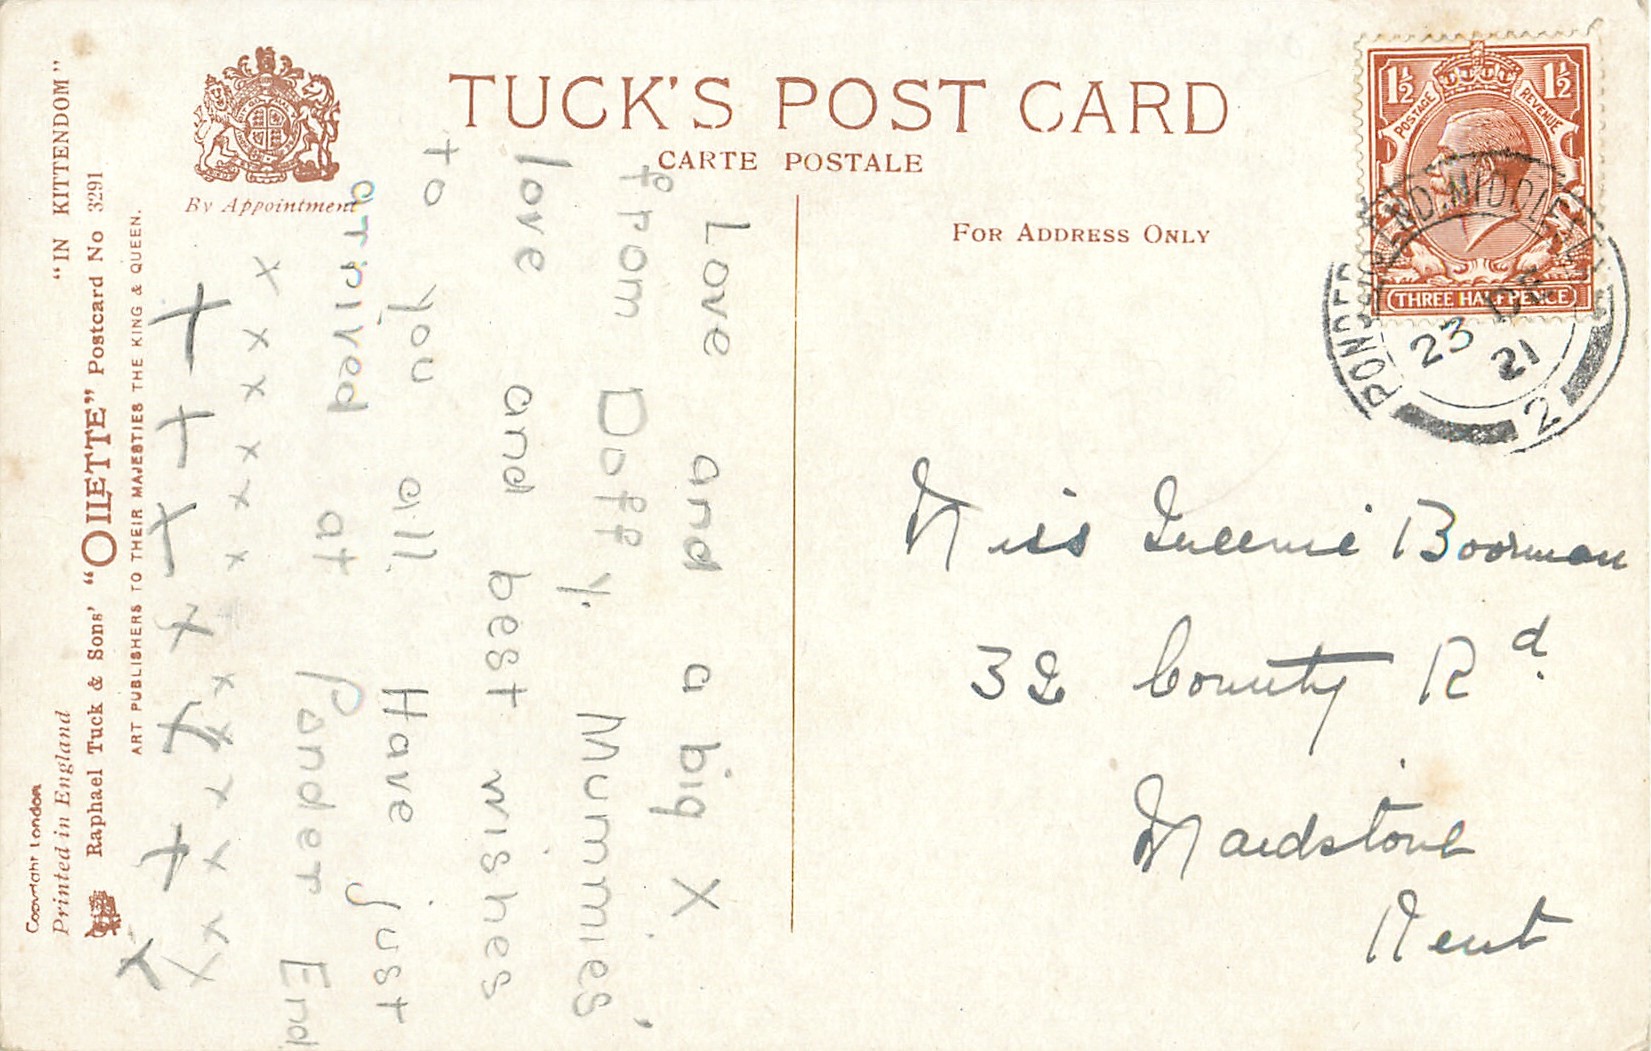 TUCK'S POST CARD
CARTE POSTALE
By Appointment
FOR ADDRESS ONLY
"IN KITTENDOM"
Raphael Tuck & Sons' "OILETTE" Postcard No 3291
ART PUBLISHERS TO THEIR MAJESTIES THE KING & QUEEN.
Printed in England
Copyright London
1½ 1½
POSTAGE REVENUE
THREE HALFPENCE
PONDERS END. MIDDLESEX
23 DE
21
2
Love and a big X
from Doffy. Mummies'
love and best wishes
to you all. Have just
arrived at Ponder End
x x x x x x x x x x x x
X X X X X X X
Miss Boorman
32 County Rd.
Maidstone
Kent